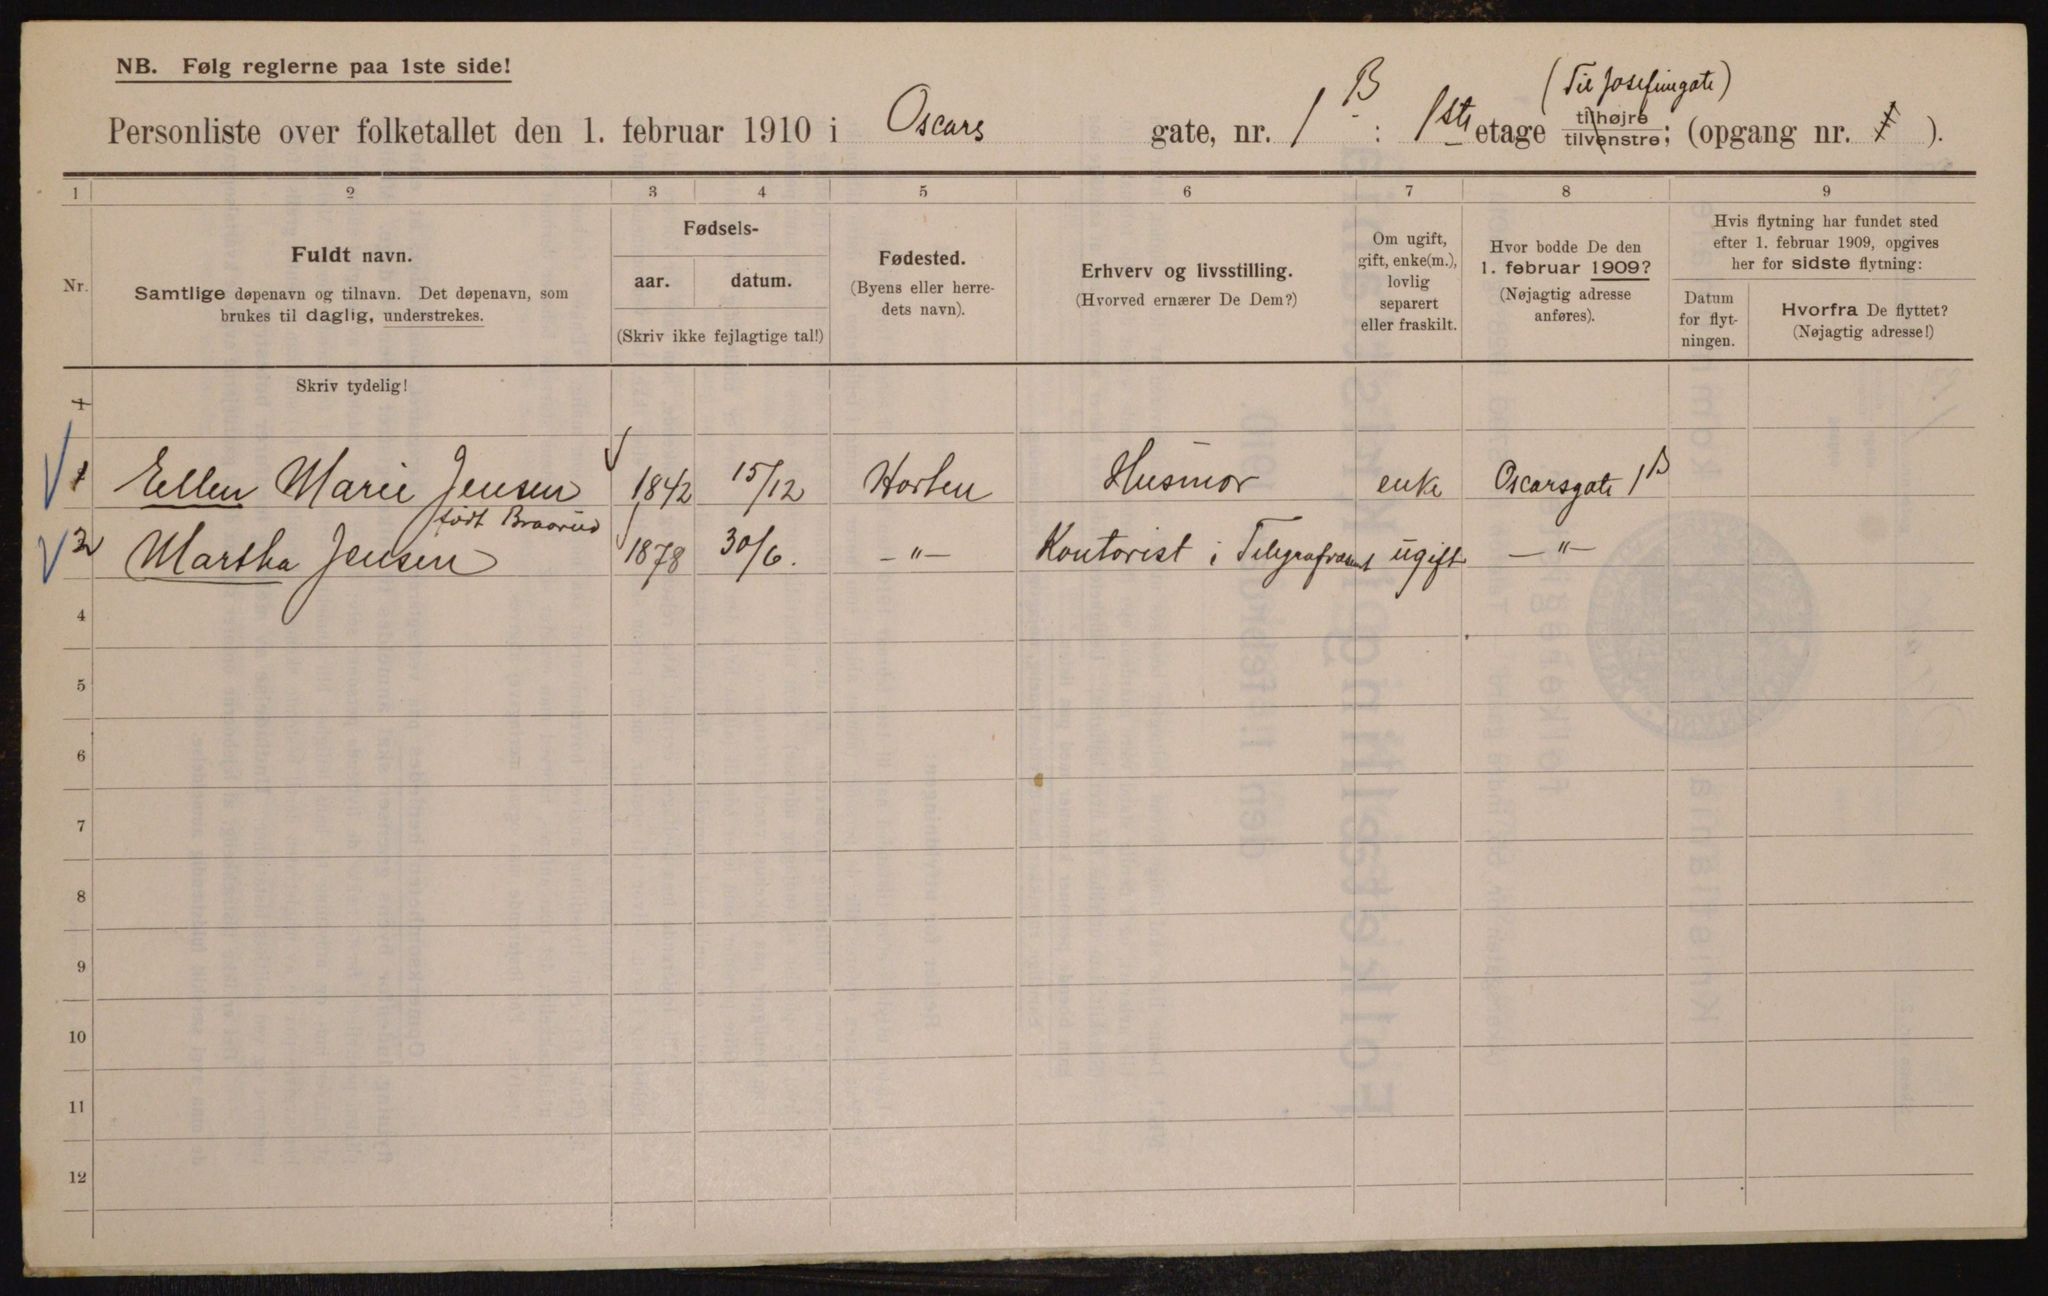 NB. Følg reglerne paa 1ste side!
(Til Josefinegate)
Personliste over folketallet den 1. februar 1910 i Oscars gate, nr. 1 B : 1ste etage tilhøjre tilvenstre; (opgang nr. ).
1 2 3 4 5 6 7 8 9
Nr.
Fuldt navn.
Samtlige døpenavn og tilnavn. Det døpenavn, som
brukes til daglig, understrekes.
Fødsels-
aar. datum.
(Skriv ikke fejlagtige tal!)
Fødested.
(Byens eller herre-
dets navn).
Erhverv og livsstilling.
(Hvorved ernærer De Dem?)
Om ugift,
gift, enke(m.),
lovlig
separert
eller fraskilt.
Hvor bodde De den
1. februar 1909?
(Nøjagtig adresse
anføres).
Hvis flytning har fundet sted
efter 1. februar 1909, opgives
her for sidste flytning:
Datum
for flyt-
ningen.
Hvorfra De flyttet?
(Nøjagtig adresse!)
Skriv tydelig!
1
1 Ellen Marie Jensen 1842 15/12 Horten Husmor enke Oscarsgate 1 B
født Braarud
2 Martha Jensen 1878 30/6. —"— Kontorist i Telegrafvæsnet ugift —"—
4
5
6
7
8
9
10
11
12